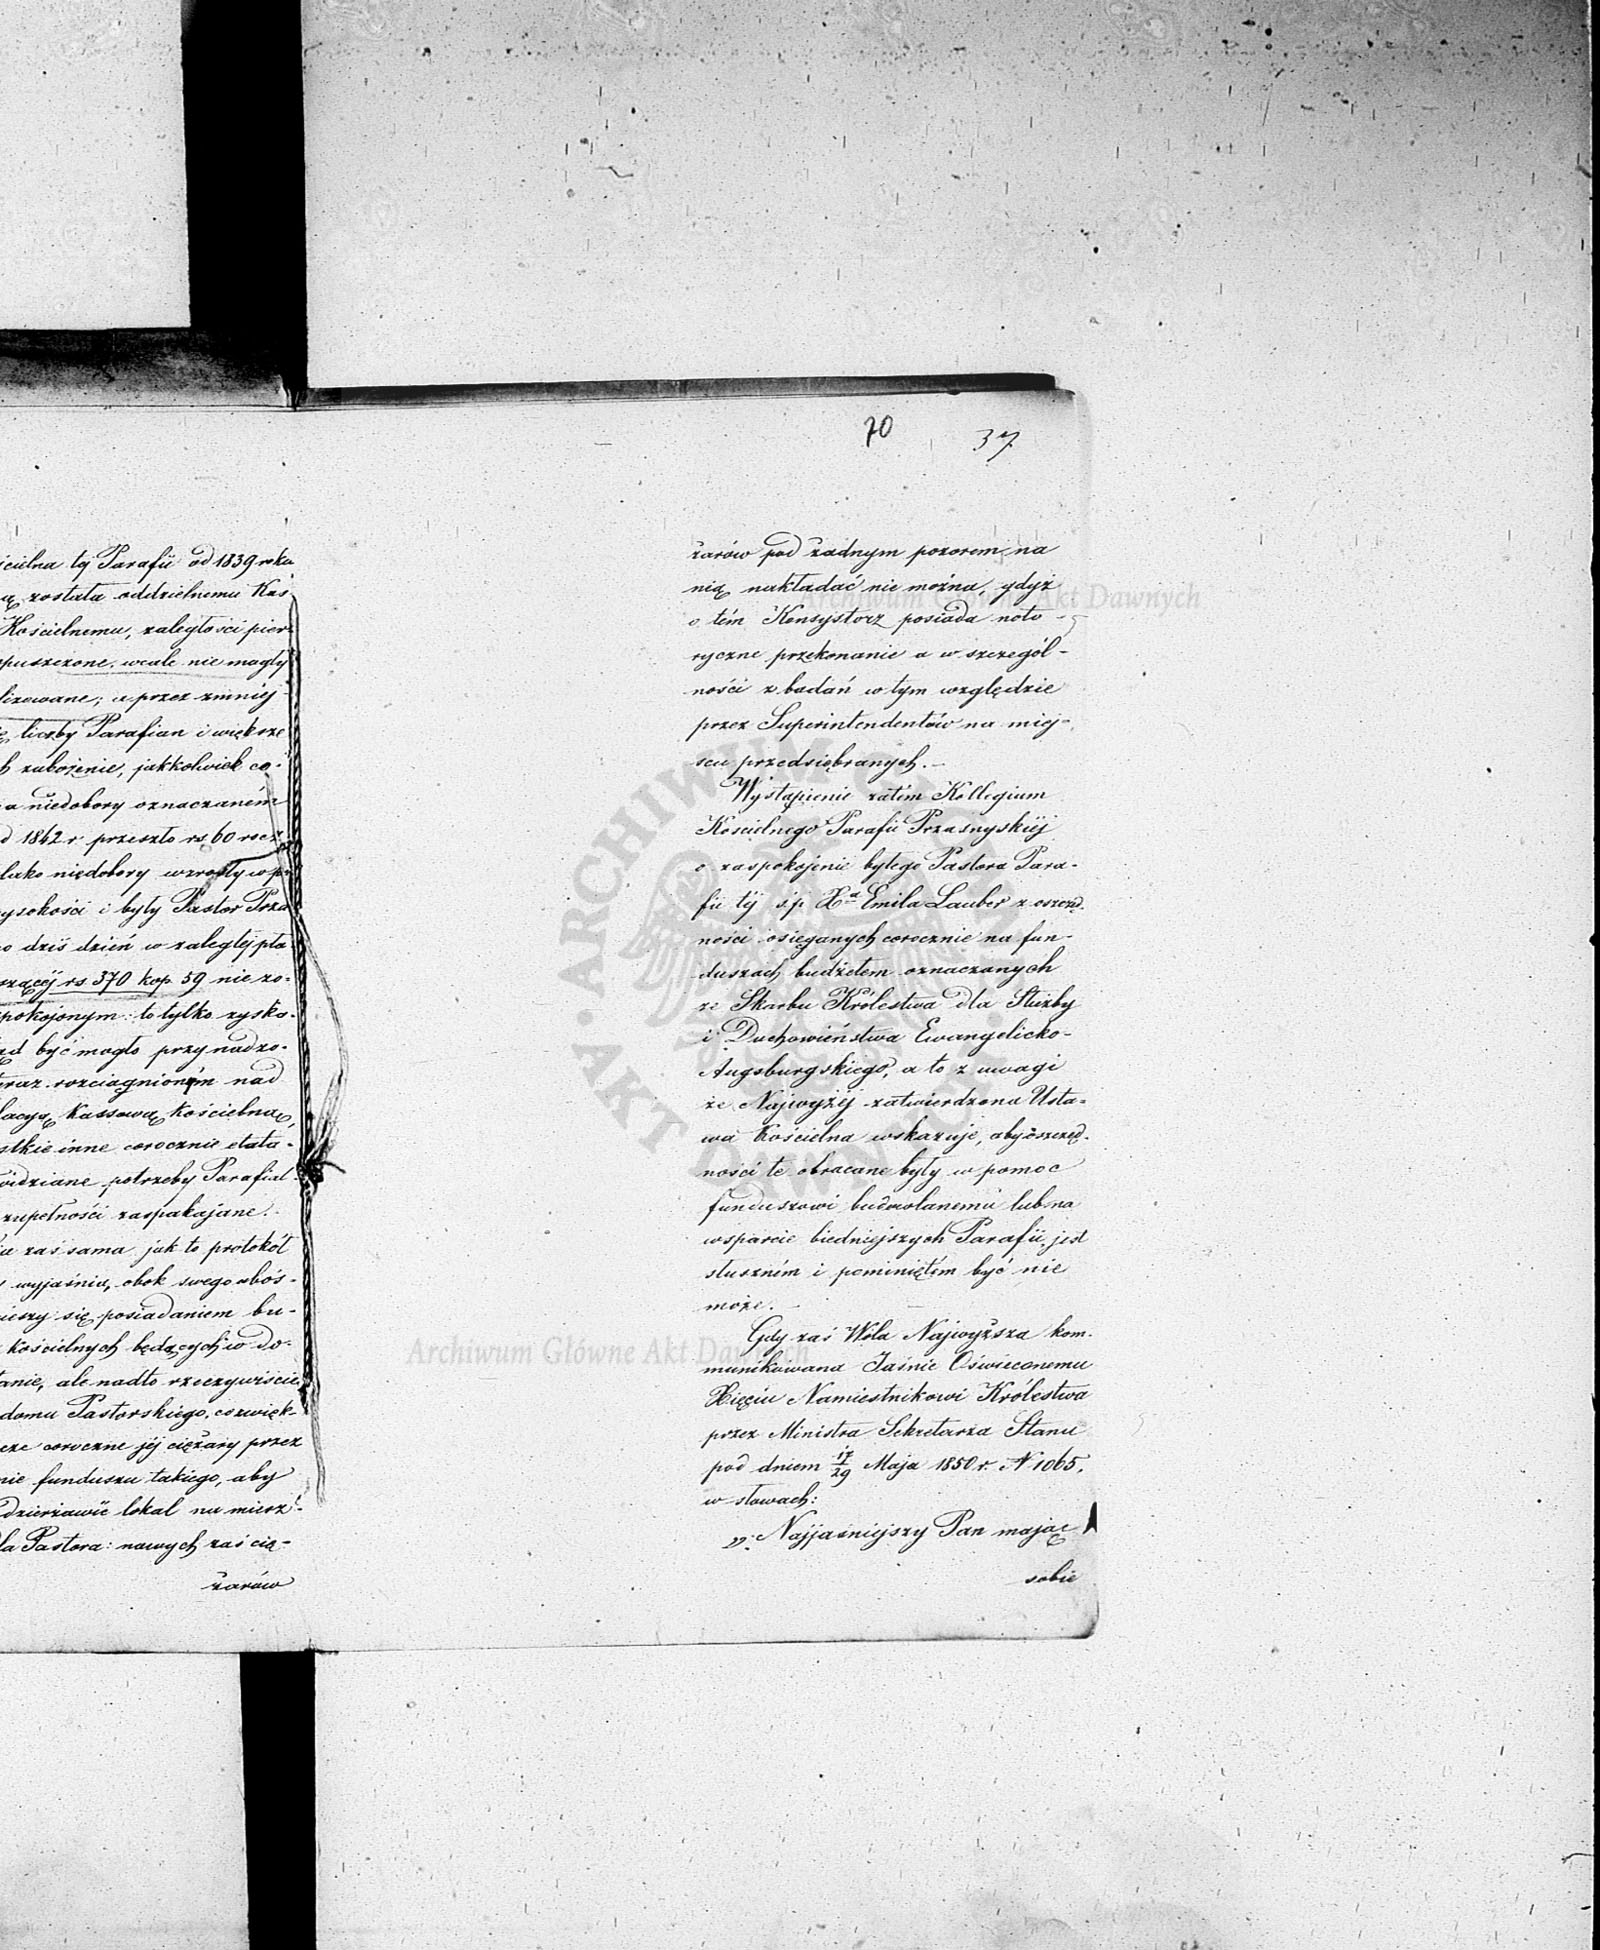 ścielna tej Parafii od 1839 roku
została oddzielnemu Kas
Kościelnemu, zaległości pier
puszczone, wcale nie mogły
lizowane; a przez zmniej-
liczby Parafian i większe
zubożenie, jakkolwiek co-
a niedobory oznaczaném
1842 r. przeszło rs. 60 rocz.
jako niedobory wzrosły w
wysokości i były Pastor Prza
dziś dzień w zaległej pła
szącéj rs 370 kop. 59 nie zo-
spokojonym: to tylko zyska-
być mogło przy nadzo-
teraz rozciągnioném nad
lacyą Kassową Kościelną,
stkie inne corocznie etata-
widziane potrzeby Parafial-
zupełności zaspakajane.
zaś sama jak to protokół
wyjaśnia, obok swego ubós-
cieszy się posiadaniem bu-
kościelnych będących w do-
stanie, ale nadto rzeczywiście
domu Pastorskiego, co zwięk-
coroczne jéj ciężary przez
nie funduszu takiego, aby
dzierżawić lokal na miesz-
dla Pastora: nowych zaś cię-
żarów
70 37
żarów pod żadnym pozorem na
nią nakładać nie można, gdyż
o tém Konsystorz posiada noto-
ryczne przekonanie a w szczegól-
ności z badań w tym względzie
przez Superintendentów na miej-
scu przedsiębranych.—
Wystąpienie zatém Kollegium
Kościelnego Parafii Przasnyskiéj
o zaspokojenie byłego Pastora Para-
fii téj ś.p. Xa Emila Lauber z oszczęd-
ności osięganych corocznie na fun-
duszach budżetem oznaczonych
ze Skarbu Królestwa dla Służby
i Duchowieństwa Ewangelicko-
Augsburgskiego, a to z uwagi
że Najwyżéj zatwierdzona Usta-
wa Kościelna wskazuje, aby oszczęd-
ności te obracane były w pomoc
funduszowi budowlanemu lub na
wsparcie biedniejszych Parafii, jest
słuszném i pominiętém być nie
może.—
Gdy zaś Wola Najwyższa kom-
munikowana Jaśnie Oświeconemu
Xięciu Namiestnikowi Królestwa
przez Ministra Sekretarza Stanu
pod dniem 17/29 Maja 1850 r. N 1065.
w słowach:
„Najjaśniejszy Pan mając
sobie
Archiwum Główne Akt Dawnych
Archiwum Główne Akt Dawnych
ARCHIWUM GŁÓWNE AKT DAWNYCH